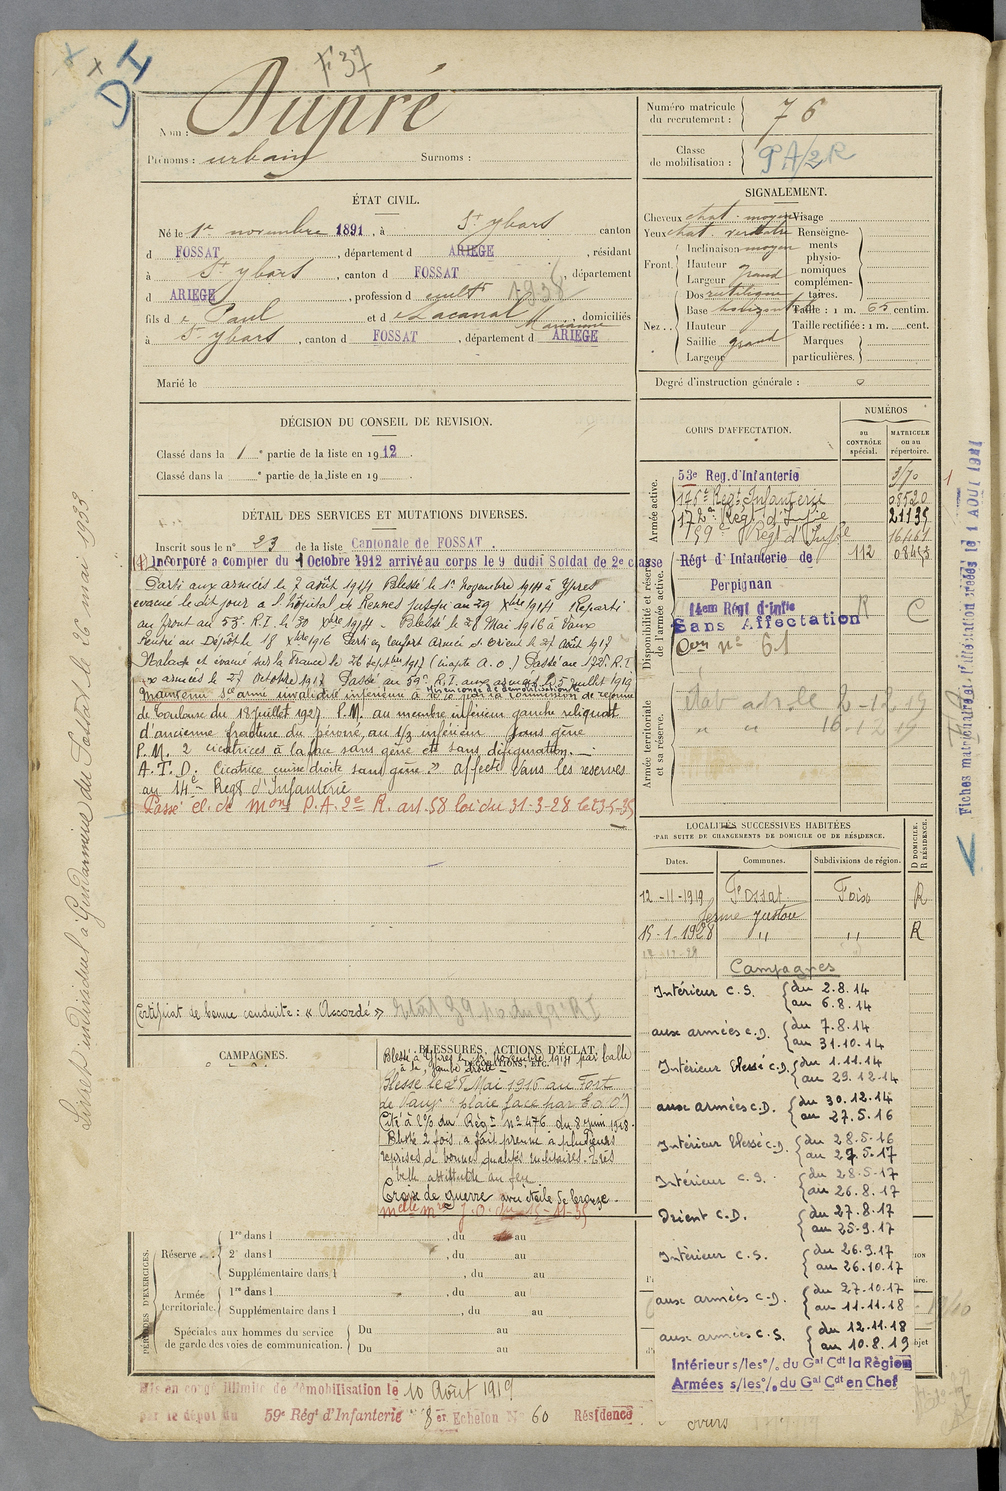 F 37
D I
Nom : Dupré
Prénoms : urbain Surnoms :
Numéro matricule du recrutement : 76
Classe de mobilisation : PA/2R
ÉTAT CIVIL.
Né le 1er novembre 1891, à St ybars canton
d FOSSAT, département d ARIEGE, résidant
à St ybars, canton d FOSSAT, département
d ARIEGE, profession d cultr 1938
fils de Paul et de Lacanal Marianne, domiciliés
à St ybars, canton d FOSSAT, département d ARIEGE
Marié le
SIGNALEMENT.
Cheveux chat. moyen Visage
Yeux chat. verdatre Renseignements physionomiques complémentaires.
Front. Inclinaison moyen
Hauteur
Largeur grand
Nez .. Dos rectiligne
Base horizontale Taille : 1 m. 65 centim.
Hauteur Taille rectifiée : 1 m. cent.
Saillie grand Marques particulières.
Largeur
Degré d'instruction générale :
DÉCISION DU CONSEIL DE REVISION.
Classé dans la 1e partie de la liste en 1912.
Classé dans la e partie de la liste en 19
DÉTAIL DES SERVICES ET MUTATIONS DIVERSES.
Inscrit sous le n° 23 de la liste Cantonale de FOSSAT.
Incorporé a compter du 1 Octobre 1912 arrivé au corps le 9 dudit Soldat de 2e classe
Parti aux armées le 2 août 1914 Blessé le 1er Novembre 1914 à Ypres
evacué le dit jour a l'hôpital de Rennes jusqu'au 29 Xbre 1914 Reparti
au front au 53e R.I. le 30 Xbre 1914 - Blessé le 28 Mai 1916 à Vaux
Rentré au Dépôt le 18 Xbre 1916 Parti en renfort Armée d'Orient le 27 Août 1917
Malade et évacué sur la France le 26 septbre 1917 (inapte A.O.) Passé au 172e R.I.
aux armées le 27 Octobre 1917 Passé au 59e R.I. aux armées le 5 juillet 1919
Maintenu Sce armé invalidité inférieure à 10 % par la Commission de réforme
de Toulouse du 18 Juillet 1927 P.M. au membre inférieur gauche reliquat
d'ancienne fracture du péroné au 1/3 inférieur sans gêne
P.M. 2 cicatrices à la face sans gêne et sans défiguration. -
A.T.D. Cicatrice cuisse droite sans gêne » affecté dans les reserves
au 14e - Regt d'Infanterie
Passé cl. de Mon P.A. 2e R. art. 58 loi du 31-3-28
Certificat de bonne conduite : « Accordé »
CORPS D'AFFECTATION.
NUMÉROS
au CONTRÔLE spécial.
MATRICULE ou au répertoire.
Armée active.
53e Reg. d'Infanterie 3170
176e Régt Infanterie 08520
172e Régt d'Infie 21135
159e Régt d'Infie 16461
Disponibilité et réserve de l'armée active.
Régt d'Infanterie de Perpignan 112
14em Régt d'Infie R C
Sans Affectation
n° 61
Armée territoriale et sa réserve.
LOCALITÉS SUCCESSIVES HABITÉES
PAR SUITE DE CHANGEMENTS DE DOMICILE OU DE RÉSIDENCE.
Dates. Communes. Subdivisions de région. D DOMICILE. R RÉSIDENCE.
12-11-1919 Fossat Foix R
ferme Juston
15-1-1928 " " R
Campagnes
Intérieur C.S. du 2.8.14 au 6.8.14
aux armées C.D. du 7.8.14 au 31.10.14
Intérieur Blessé C.D. du 1.11.14 au 29.12.14
aux armées C.D. du 30.12.14 au 27.5.16
Intérieur Blessé C.D. du 28.5.16 au 27.5.17
Intérieur C.S. du 28.5.17 au 26.8.17
Orient C.D. du 27.8.17 au 25.9.17
Intérieur C.S. du 26.9.17 au 26.10.17
aux armées C.D. du 27.10.17 au 11.11.18
aux armées C.S. du 12.11.18 au 10.8.19
Intérieur s/les % du Gal Cdt la Région
Armées s/les % du Gal Cdt en Chef
CAMPAGNES.
BLESSURES, ACTIONS D'ÉCLAT, DÉCORATIONS, ETC.
Blessé à Ypres le 1er novembre 1914 par balle
à la jambe droite
Blessé le 28 Mai 1916 au Fort
de Vaux plaie face par E.O.
Cité à l'O du Régt n° 476 du 8 Juin 1918.
Blessé 2 fois, a fait preuve à plusieurs
reprises de bonnes qualités militaires. Très
belle attitude au feu.
Croix de guerre avec étoile de bronze.
PÉRIODES D'EXERCICES.
Réserve ... 1re dans l , du au
2e dans l , du au
Supplémentaire dans l , du au
Armée territoriale. 1re dans l , du au
Supplémentaire dans l , du au
Spéciales aux hommes du service de garde des voies de communication. Du au
Du au
Mis en congé illimité de démobilisation le 10 Août 1919
par le dépot du 59e Régt d'Infanterie 8er Echelon No 60 Résidence
Livret individuel à Gendarmerie du Fossat le 26 mai 1933.